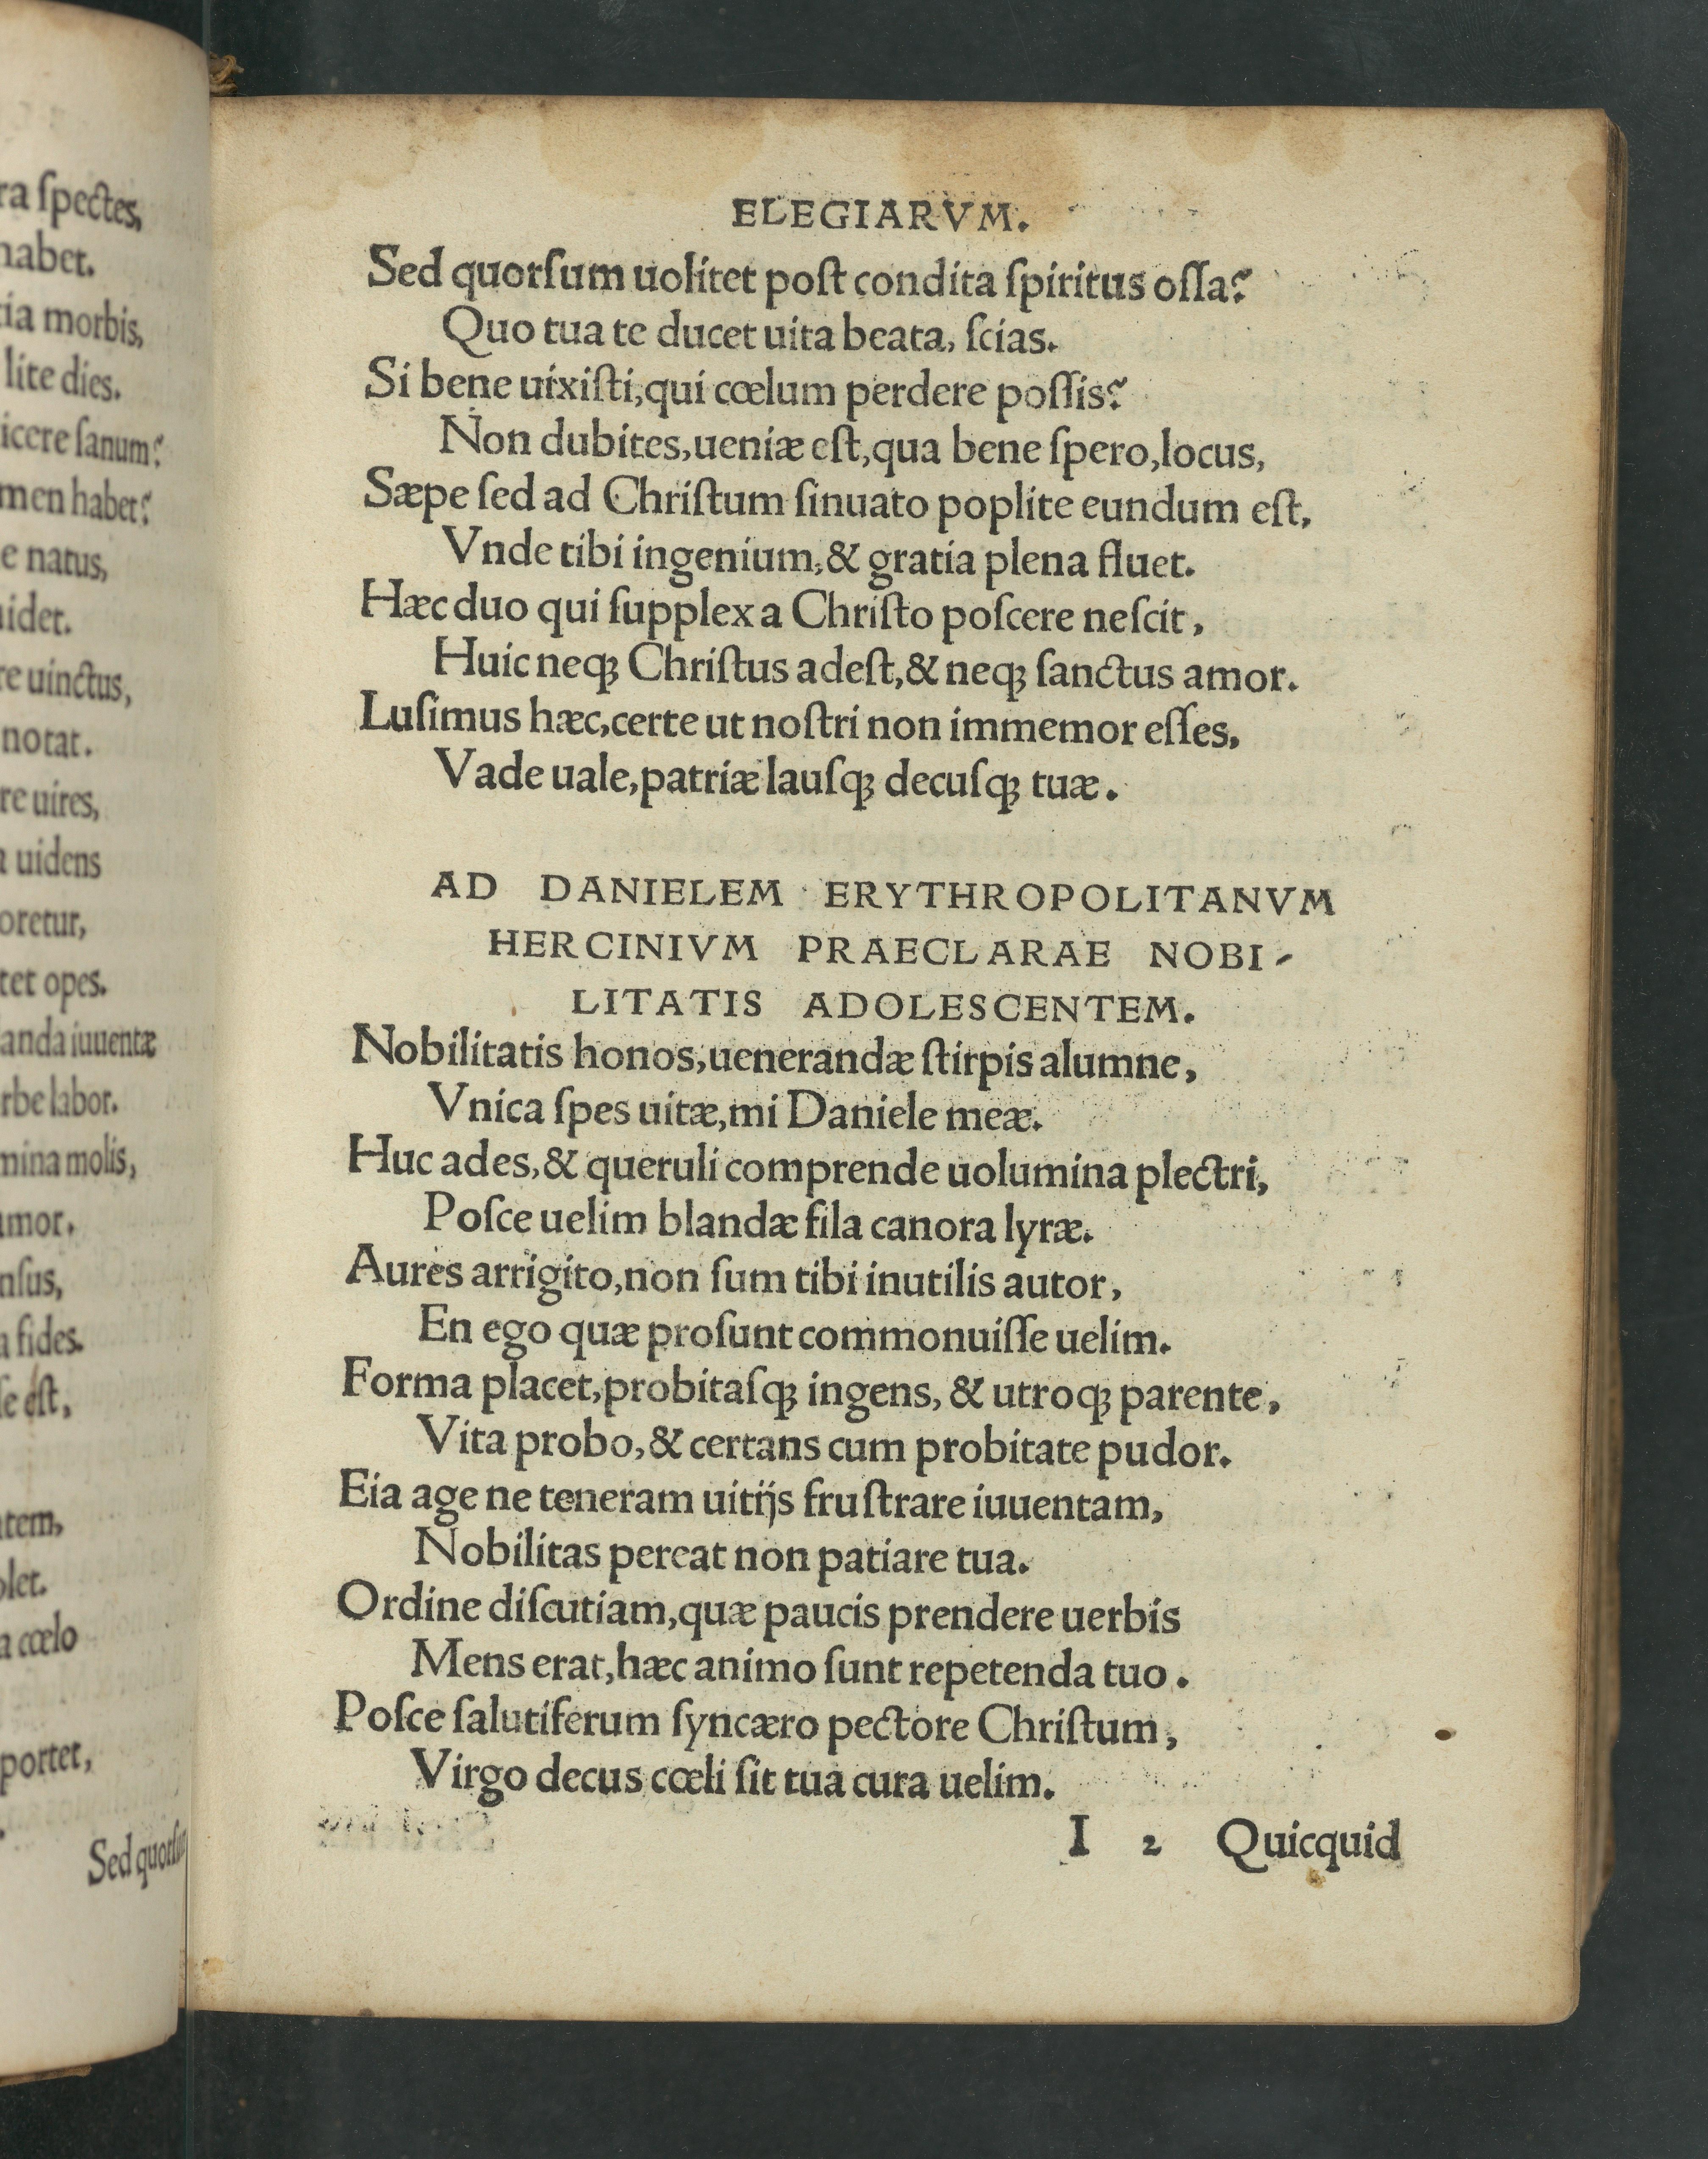 ra ſpectes,
habet.
tia morbis,
lite dies.
icere ſanum?
men habet?
e natus,
uidet.
re uinctus,
notat.
re uires,
a uidens
oretur,
tet opes.
anda iuuentæ
rbe labor.
mina molis,
amor.
nſus,
a fides.
ſe eſt,
ntem,
olet.
a cœlo
portet,
Sed quorſu
ELEGIARVM.
Sed quorſum uolitet poſt condita ſpiritus oſſa?
Quo tua te ducet uita beata, ſcias.
Si bene uixiſti, qui cœlum perdere poſſis?
Non dubites, ueniæ eſt, qua bene ſpero, locus,
Sæpe ſed ad Chriſtum ſinuato poplite eundum eſt,
Vnde tibi ingenium, & gratia plena fluet.
Hæc duo qui ſupplex a Chriſto poſcere neſcit,
Huic neqꝫ Chriſtus adeſt, & neqꝫ ſanctus amor.
Luſimus hæc, certe ut noſtri non immemor eſſes,
Vade uale, patriæ lauſqꝫ decuſqꝫ tuæ.
AD DANIELEM ERYTHROPOLITANVM
HERCINIVM PRAECLARAE NOBI-
LITATIS ADOLESCENTEM.
Nobilitatis honos, uenerandæ ſtirpis alumne,
Vnica ſpes uitæ, mi Daniele meæ.
Huc ades, & queruli comprende uolumina plectri,
Poſce uelim blandæ fila canora lyræ.
Aures arrigito, non ſum tibi inutilis autor,
En ego quæ proſunt commonuiſſe uelim.
Forma placet, probitaſqꝫ ingens, & utroqꝫ parente,
Vita probo, & certans cum probitate pudor.
Eia age ne teneram uitijs fruſtrare iuuentam,
Nobilitas pereat non patiare tua.
Ordine diſcutiam, quæ paucis prendere uerbis
Mens erat, hæc animo ſunt repetenda tuo.
Poſce ſalutiferum ſyncæro pectore Chriſtum,
Virgo decus cœli ſit tua cura uelim.
I 2 Quicquid